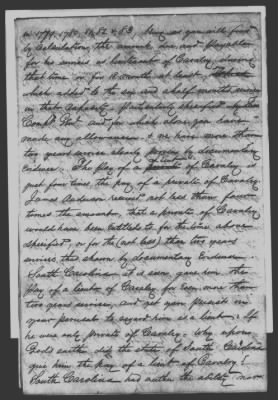 in 1779, 1780, 81, 82 & 83, being as you will find
by Calculation, the amount due, and payable
for his services as lieutenant of Cavalry, during
that time or for 18 months at least,
which added to the six and a half months service
in that Capacity, Particularly specified by
Compt Genl and for which alone you have
made any allowance, & we have more than
two years service clearly proven by documentary
Evidence. The pay of a lieutenant of Cavalry is
just four times the pay of a private of Cavalry.
James Anderson received not less than four
times the amount, that a private of Cavalry
would have been entitled to for the time above
specified, or for the (not less) than two years
service, thus shewn by documentary Evidence.
South Carolina it is seen, gave him the
pay of a lieut of Cavalry for even more than
two years services, and yet you persist in
your pursuit to regard him as a lieut - as if
he were only private of Cavalry. Why upon
God's earth did the state of South Carolina
give him the pay of a lieut of Cavalry?
South Carolina had neither the ability nor